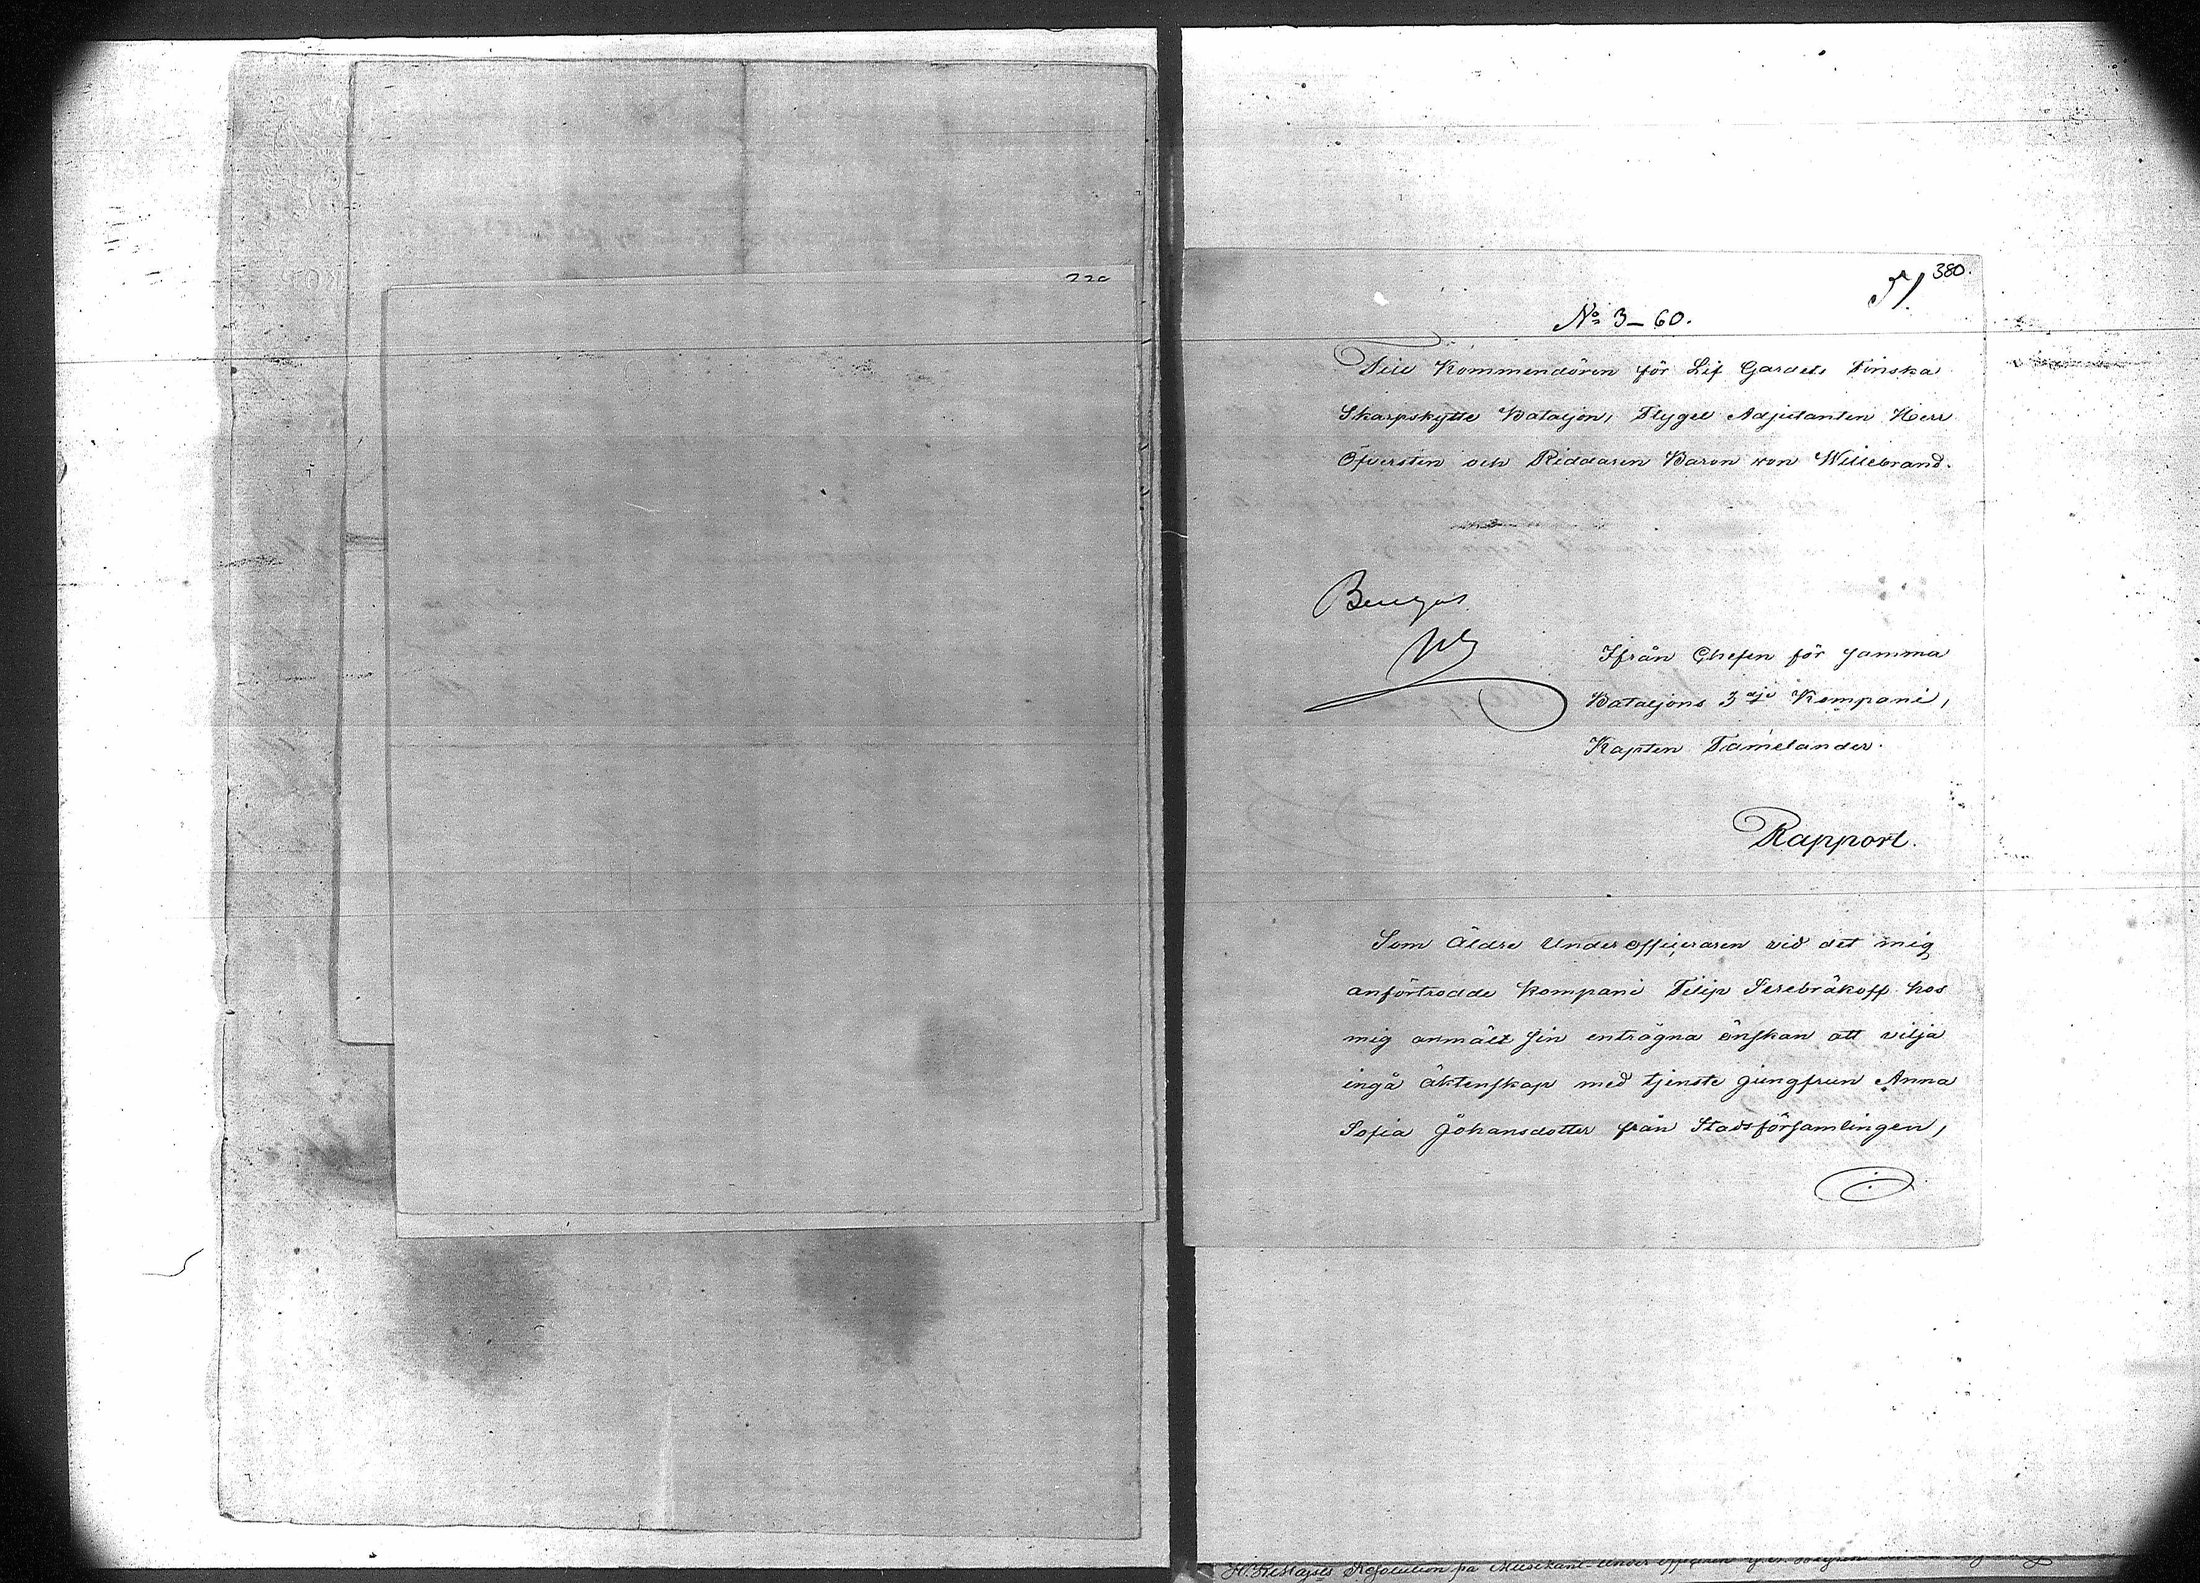 380.
51.
No 3–60.
Till Kommendören för Lif Gardets Finska
Skarpskytte Bataljon, Flygel Adjutanten Herr
Öfversten och Riddaren Baron von Willebrand.
Beviljas
Ifrån Chefen för samma
Bataljons 3dje Kompani,
Kapten Tamelander.
Rapport.
Som Äldre Underofficeraren vid det mig
anförtrodde Kompani Filip Serebräkoff hos
mig anmält sin enträgna önskan att vilja
ingå äktenskap med tjenste jungfrun Anna
Sofia Johansdotter från Stadsförsamlingen,
Resolution på Musikant-Under